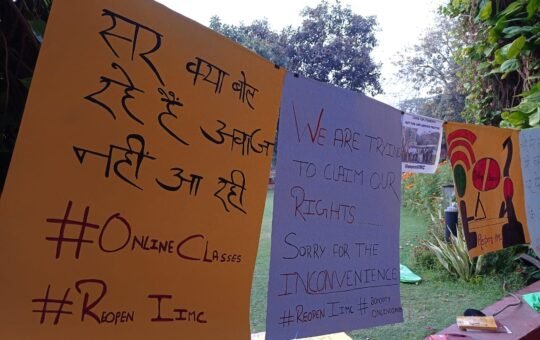 सर क्या बोल
रहे हैं अवाज
नही आ रही
#ONLINE CLASSES
#REOPEN IIMC
WE ARE TRYING
TO CLAIM OUR
RIGHTS
SORRY FOR THE
INCONVENIENCE
#REOPEN IIMC #BOYCOTT